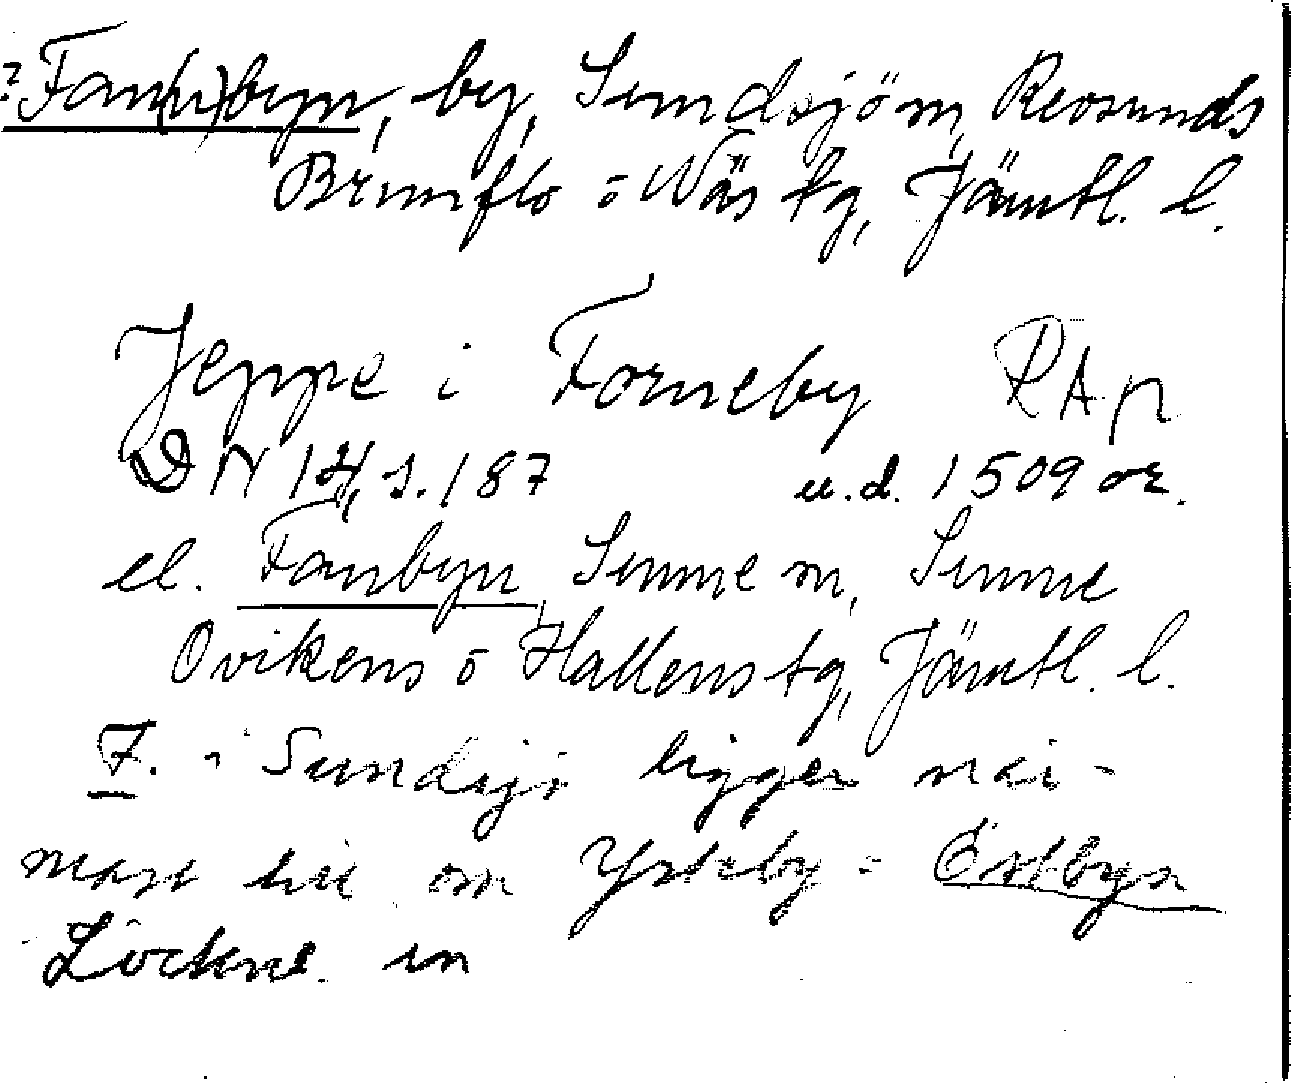 ? Fan(n)byn, by, Sundsjö m, Revsunds
Brunflo o Näs tg, Jämtl. l.
Jeppe i Forneby RAp
DN 14, s. 187 u.d. 1509 or.
el. Fanbyn, Sunne m, Sunne
Ovikens o Hallens tg, Jämtl. l.
F. i Sundsjö ligger när-
mast till om Ysteby = Östbyn
Lockne sn